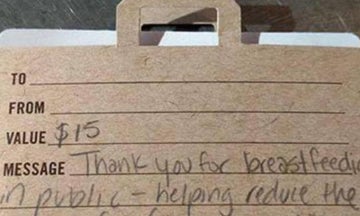 TO
FROM
VALUE $15
MESSAGE Thank you for breastfeedi
in public - helping reduce the